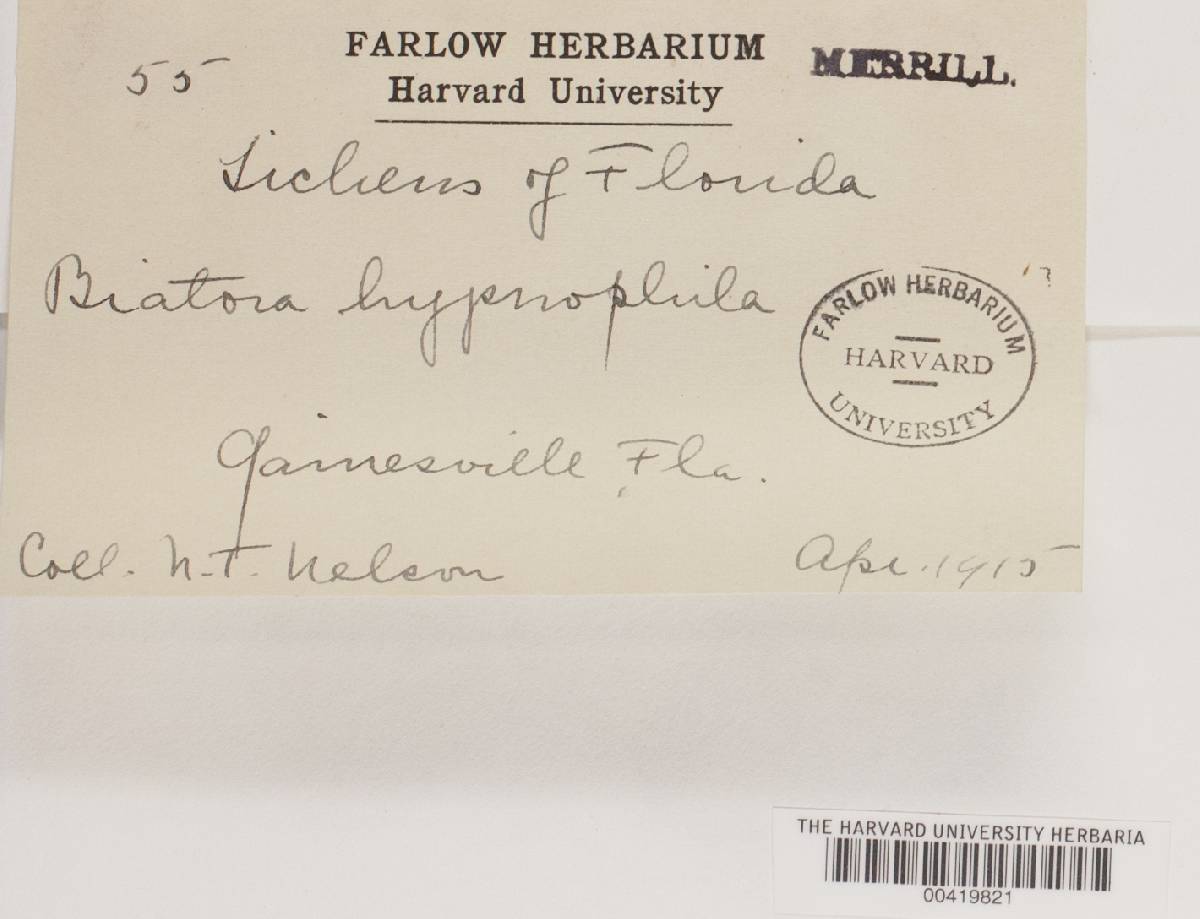 FARLOW HERBARIUM
Harvard University
MERRILL.
55
Lichens of Florida
Biatora hypnophila
?
FARLOW HERBARIUM
HARVARD
UNIVERSITY
Gainesville, Fla.
Coll. N.T. Nelson
Apr. 1915
THE HARVARD UNIVERSITY HERBARIA
00419821